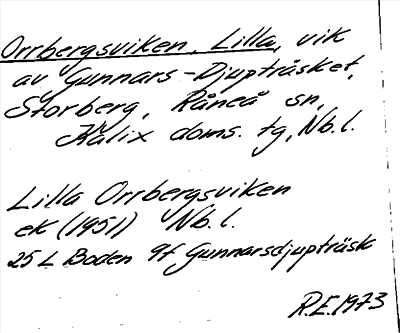 Orrbergsviken, Lilla, vik
av Gunnars-Djupträsket,
Storberg, Råneå sn,
Kalix doms. tg, Nb.l.
Lilla Orrbergsviken
ek (1951) Nb.l.
25 L Boden 9f Gunnarsdjupträsk
R.E. 1973